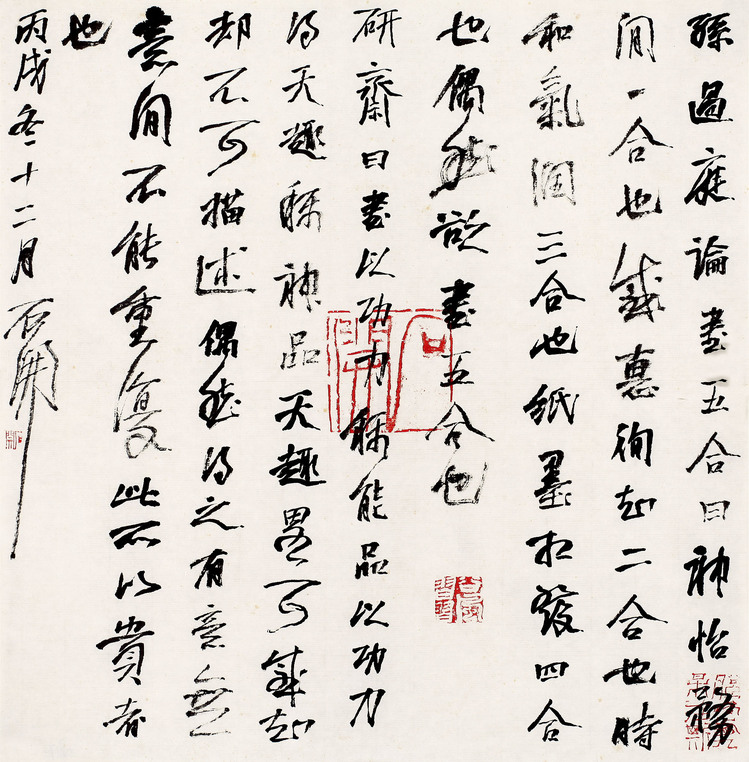 孫過庭論書五合曰神怡務
閒一合也感惠徇知二合也時
和氣潤三合也紙墨相發四合
也偶然欲書五合也
研齋曰書以功力稱能品以功力
得天趣稱神品天趣畧可感知
却不可描述偶然得之有意無
意間不能重復此所以貴者
也
丙戌冬十二月石開
石開